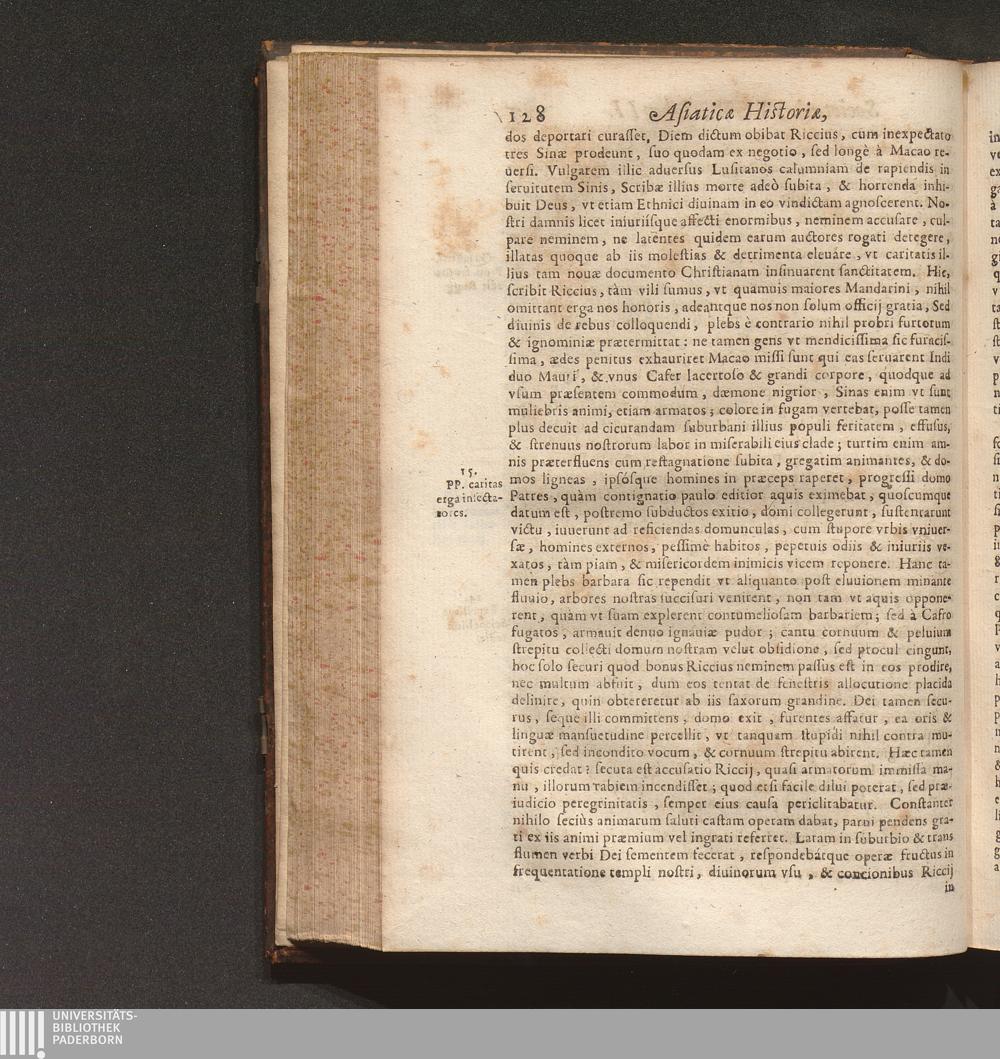 128 Asiaticæ Historiæ,
dos deportari curasset. Diem dictum obibat Riccius, cùm inexpectato
tres Sinæ prodeunt, suo quodam ex negotio, sed longè à Macao re-
uersi. Vulgarem illic aduersus Lusitanos calumniam de rapiendis in
seruitutem Sinis, Scribæ illius morte adeò subita, & horrenda inhi-
buit Deus, vt etiam Ethnici diuinam in eo vindictam agnoscerent. No-
stri damnis licet iniuriísque affecti enormibus, neminem accusare, cul-
pare neminem, ne latentes quidem earum auctores rogati detegere,
illatas quoque ab iis molestias & detrimenta eleuare, vt caritatis il-
lius tam nouæ documento Christianam insinuarent sanctitatem. Hic,
scribit Riccius, tàm vili sumus, vt quamuis maiores Mandarini, nihil
omittant erga nos honoris, adeantque nos non solum officij gratia, Sed
diuinis de rebus colloquendi, plebs è contrario nihil probri furtorum
& ignominiæ prætermittat: ne tamen gens vt mendicissima sic furacis-
sima, ædes penitus exhauriret Macao missi sunt qui eas seruarent Indi
duo Mauri, & vnus Cafer lacertoso & grandi corpore, quodque ad
vsum præsentem commodum, dæmone nigrior, Sinas enim vt sunt
muliebris animi, etiam armatos; colore in fugam vertebat, posse tamen
plus decuit ad cicurandam suburbani illius populi feritatem, effusus,
& strenuus nostrorum labor in miserabili eius clade; turtim enim am-
nis præterfluens cùm restagnatione subita, gregatim animantes, & do-
15.
PP. caritas
erga insecta-
tores.
mos ligneas, ipsósque homines in præceps raperet, progressi domo
Patres, quàm contignatio paulo editior aquis eximebat, quoscumque
datum est, postremo subductos exitio, domi collegerunt, sustentarunt
victu, iuuerunt ad reficiendas domunculas, cum stupore vrbis vniuer-
sæ, homines externos, pessimè habitos, pepetuis odiis & iniuriis ve-
xatos, tàm piam, & misericordem inimicis vicem reponere. Hanc ta-
men plebs barbara sic rependit vt aliquanto post eluuionem minante
fluuio, arbores nostras succisuri venirent, non tam vt aquis oppone-
rent, quàm vt suam explerent contumeliosam barbariem; sed à Cafro
fugatos, armauit denuo ignauiæ pudor; cantu cornuum & peluium
strepitu collecti domum nostram velut obsidione, sed procul cingunt,
hoc solo securi quod bonus Riccius neminem passus est in eos prodire,
nec multum abfuit, dum eos tentat de fenestris allocutione placida
delinire, quin obtereretur ab iis saxorum grandine. Dei tamen secu-
rus, seque illi committens, domo exit, furentes affatur, ea oris &
linguæ mansuetudine percellit, vt tanquam stupidi nihil contra mu-
tirent, sed incondito vocum, & cornuum strepitu abirent. Hæc tamen
quis credat? secuta est accusatio Riccij, quasi armatorum immissa ma-
nu, illorum rabiem incendisset; quod etsi facile dilui poterat, sed præ-
iudicio peregrinitatis, semper eius causa periclitabatur. Constanter
nihilo seciùs animarum saluti castam operam dabat, parui pendens gra-
ti ex iis animi præmium vel ingrati referret. Latam in suburbio & trans
flumen verbi Dei sementem fecerat, respondebátque operæ fructus in
frequentatione templi nostri, diuinorum vsu, & concionibus Riccij
in
UNIVERSITÄTS-
BIBLIOTHEK
PADERBORN